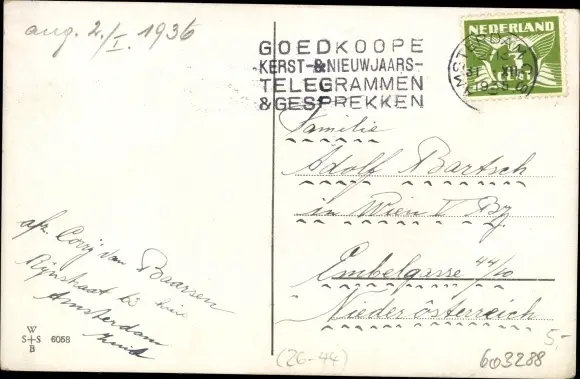 ang. 2./I. 1936
GOEDKOOPE
KERST-&NIEUWJAARS-
TELEGRAMMEN
&GESPREKKEN
NEDERLAND
AMSTERDAM
31 XII
1935
Familie
Adolf Bartsch
in Wien V Bz
Embelgasse 44/10
Niederösterreich
afz. Corry van Baarsen
Rijnstraat 63 huis
Amsterdam
Zuid
W
S+S
B
6058
5,-
(26-44)
603288